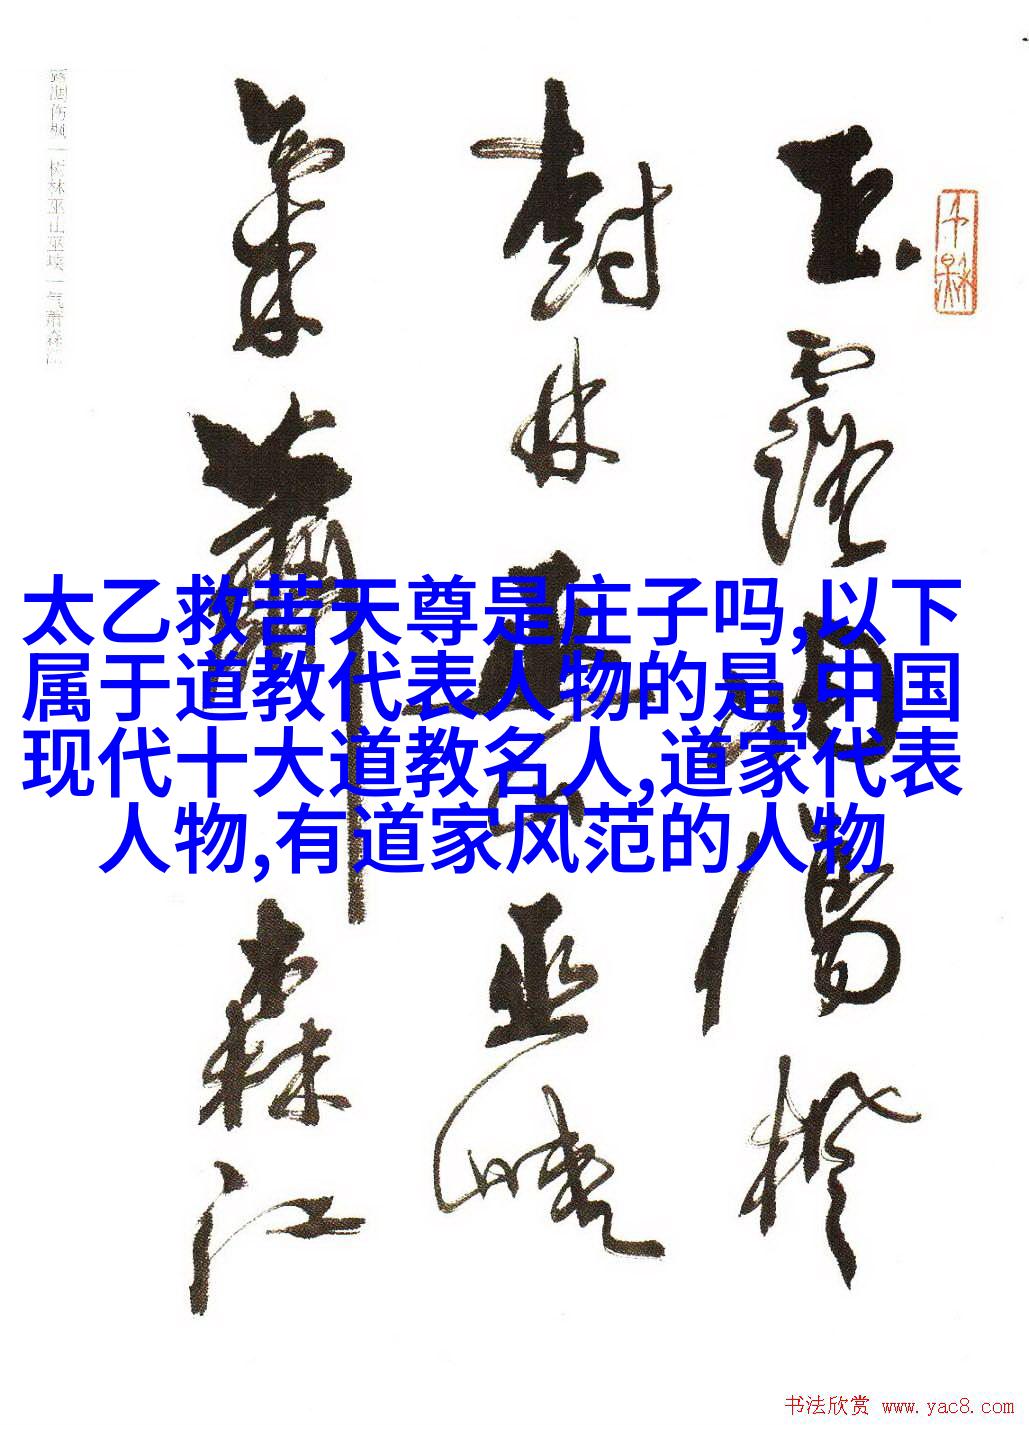 玉露凋傷楓
樹林巫山巫峡
氣蕭森江
露凋伤枫一树林巫山巫峡一气萧森江
太乙救苦天尊是庄子吗,以下
属于道教代表人物的是,中国
现代十大道教名人,道家代表
人物,有道家风范的人物
书法欣赏 www.yac8.com